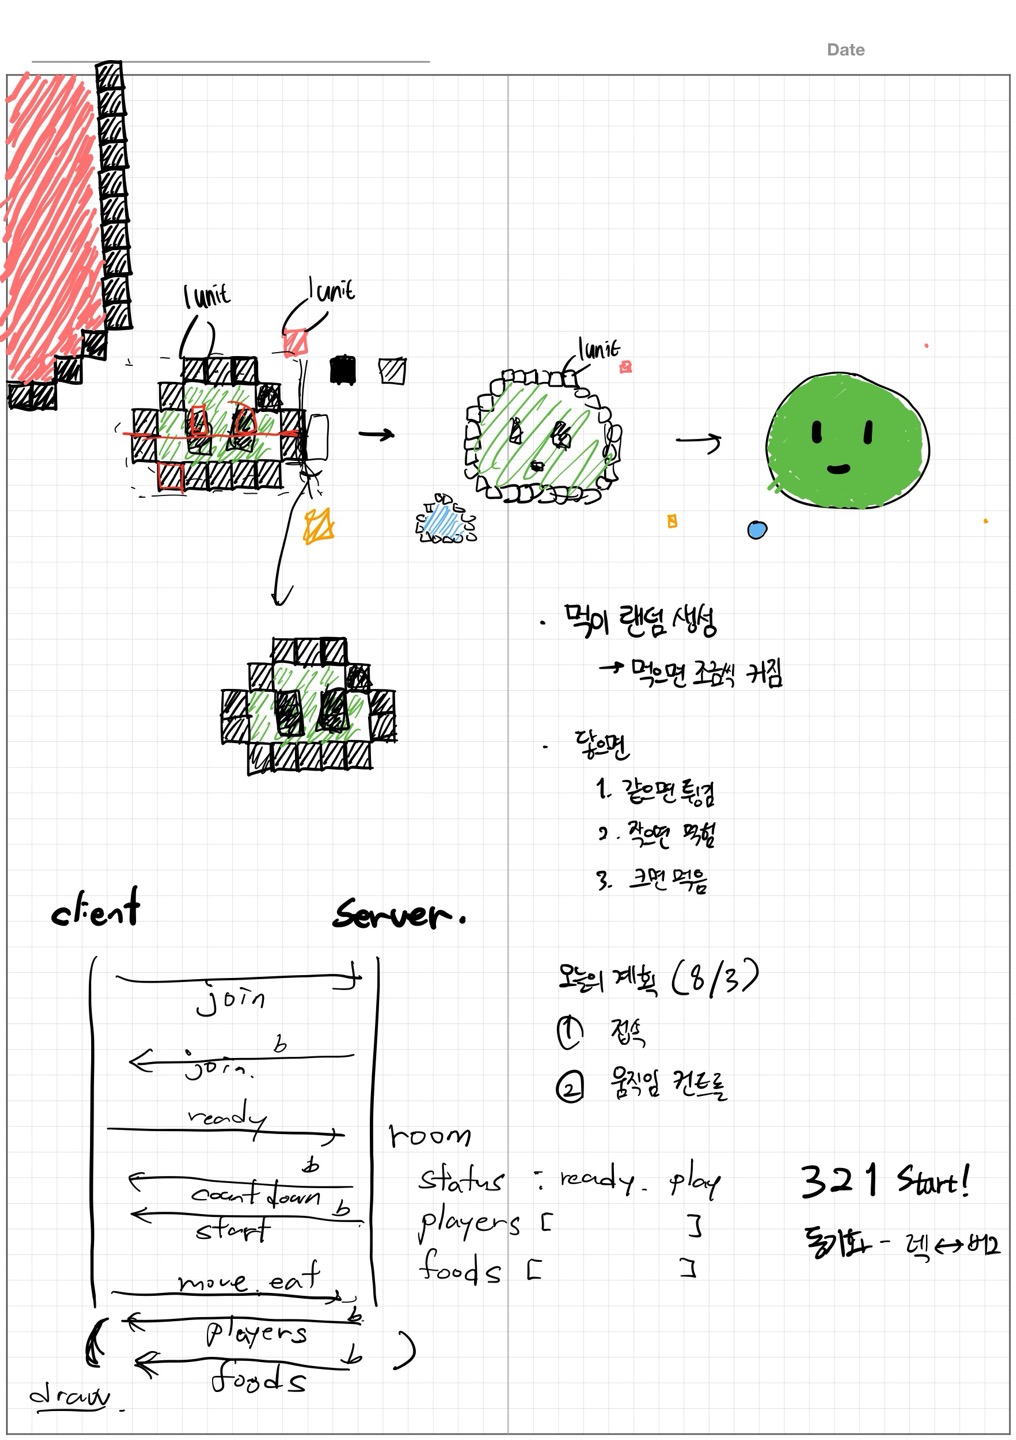 Date
1unit
1unit
1unit
· 먹이 랜덤 생성
→ 먹으면 조금씩 커짐
· 닿으면
1. 같으면 튕김
2. 작으면 먹힘
3. 크면 먹음
client
server.
join
b
join.
ready
b
countdown
b
start
move. eat
b
players
b
foods
draw.
room
status : ready. play
players [ ]
foods [ ]
오늘의 계획 (8/3)
① 접속
② 움직임 컨트롤
3 2 1 Start!
동기화 - 렉 ↔ 버그